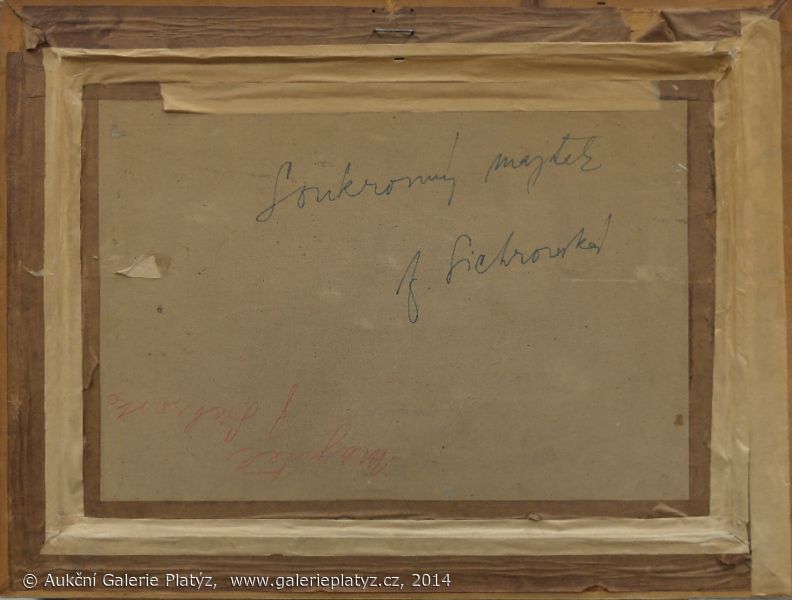 Soukromný majtek
J. Sichrovská
Majitel
J. Sichrovská
© Aukční Galerie Platýz, www.galerieplatyz.cz, 2014